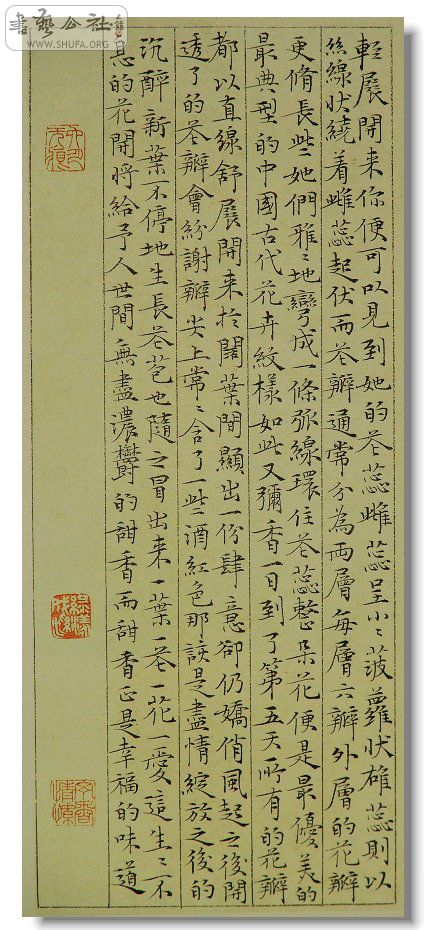 輕展開来你便可以見到她的花蕊雌蕊呈小〻菠蘿狀雄蕊則以
絲線状繞着雌蕊起伏而花瓣通常分為両層每層六瓣外層的花瓣
更脩長些她們雅〻地彎成一條弥線環住花蕊整朵花便是最優美的
最典型的中國古代花卉紋樣如此又彌香一日到了第五天所有的花瓣
都以直線舒展開来於闊葉間顯出一份肆意卻仍嬌俏風起之後開
透了的花瓣會紛謝瓣尖上常〻含了一些酒紅色那該是盡情綻放之後的
沉醉新葉不停地生長花苞也隨之冒出来一葉一花一花一愛這生〻不
息的花開將給予人世間無盡濃鬱的甜香而甜香正是幸福的味道
書藝公社
WWW.SHUFA.ORG